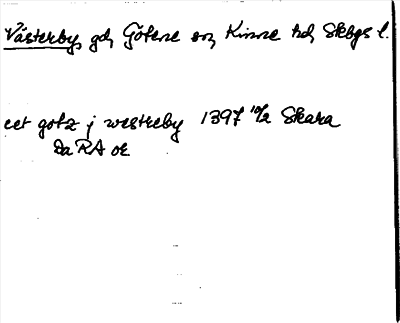 Västerby, gd, Götene sn, Kinne hd, Skbgs l.
eet gotz j westreby 1397 10/2 Skara
Da RA or